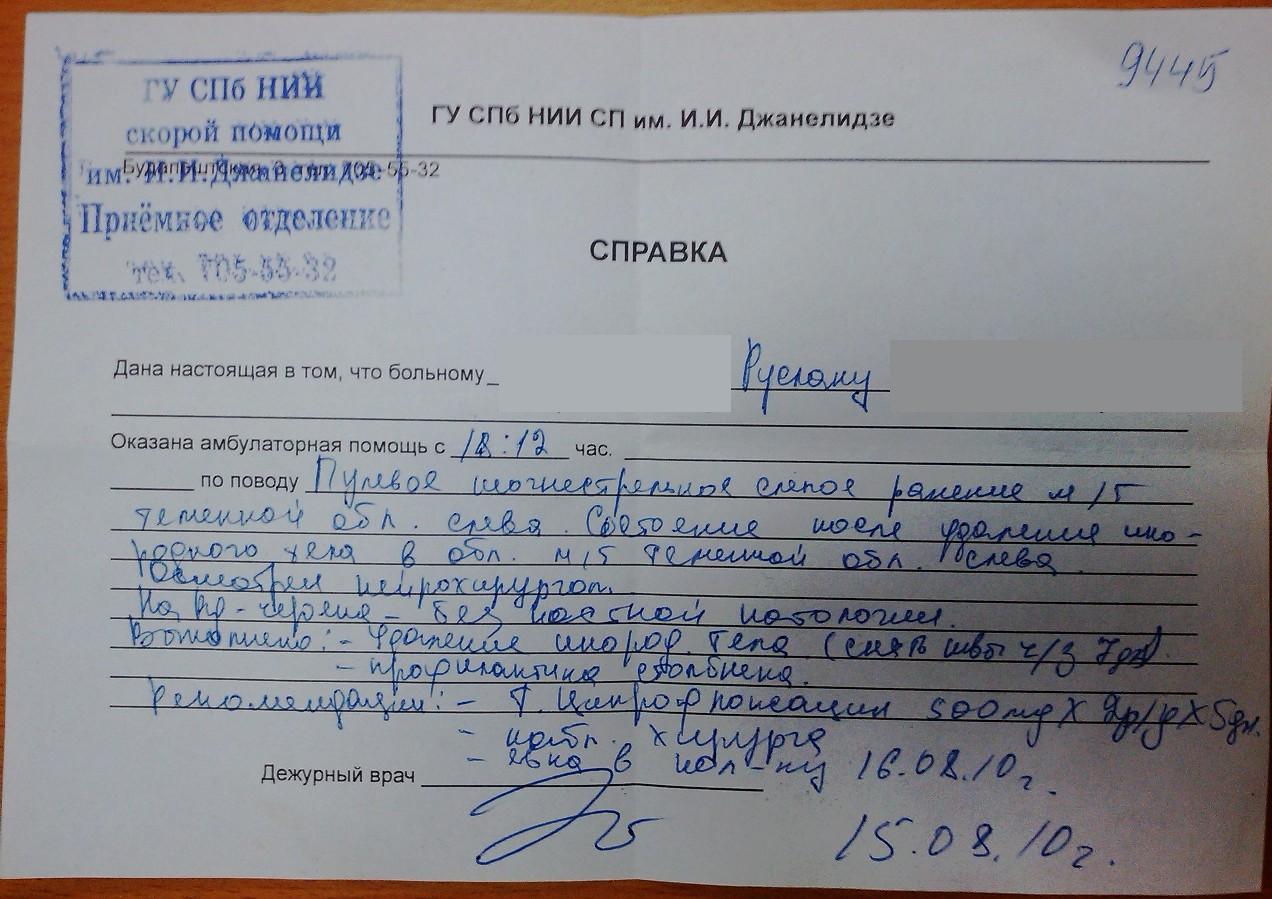 9445
ГУ СПб НИИ
скорой помощи
им. И.И.Джанелидзе
Приёмное отделение
тел. 705-55-32
ГУ СПб НИИ СП им. И.И. Джанелидзе
Будапештская, 3, тел. 705-55-32
СПРАВКА
Дана настоящая в том, что больному Руслану
Оказана амбулаторная помощь с 18:12 час.
по поводу Пулевое огнестрельное слепое ранение м/т
теменной обл. слева. Состояние после удаления ино-
родного тела в обл. м/т теменной обл. слева.
Осмотрен нейрохирургом.
На Rg-черепа - без костной патологии.
Выполнено: - Удаление инород. тела (снять швы ч/з 7дн).
- профилактика столбняка.
Рекомендации: - Т. Ципрофлоксацин 500mg X 2р/д X 5дн.
- набл. хирурга
- явка в пол-ку 16.08.10г.
Дежурный врач
15.08.10г.